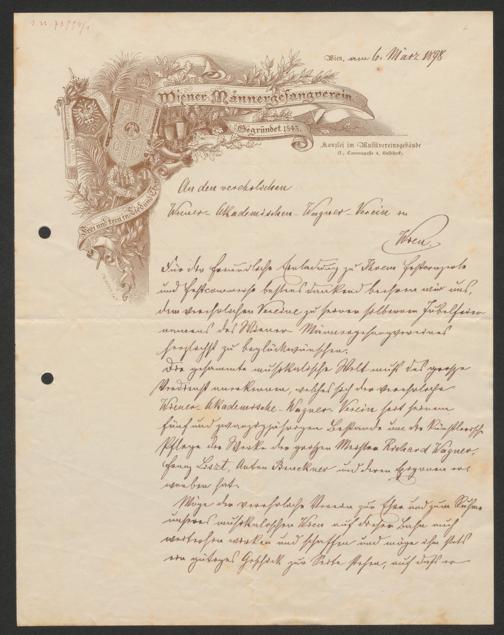 Wien, am 6. März 1898
Wiener Männergesangverein
Gegründet 1843.
Kanzlei im Musikvereinsgebäude
Frei und treu in Lied und That
An den verehrlichen
Wiener-Akademischen-Wagner-Verein in
Wien
Für die freundliche Einladung zu Ihrem Festconzerte
und Festcommerse bestens dankend beehren wir uns,
dem verehrlichen Vereine zu seiner silbernen Jubelfeier
namens des Wiener Männergesangvereines
herzlichst zu beglückwünschen.
Die gesammte musikalische Welt muß das große
Verdienst anerkennen, welches sich der verehrliche
Wiener-Akademische-Wagner-Verein seit seinem
fünf und zwanzigjährigen Bestande um die künstlerische
Pflege der Werke der großen Meister Richard Wagner,
Franz Liszt, Anton Bruckner und deren Epigonen er-
worben hat.
Möge der verehrliche Verein zur Ehre und zum Ruhme
unseres musikalischen Wien auf dieser Bahn auch
weiterhin wirken und schaffen und möge ihm stets
ein gütiges Geschick zur Seite stehen, auf daß er